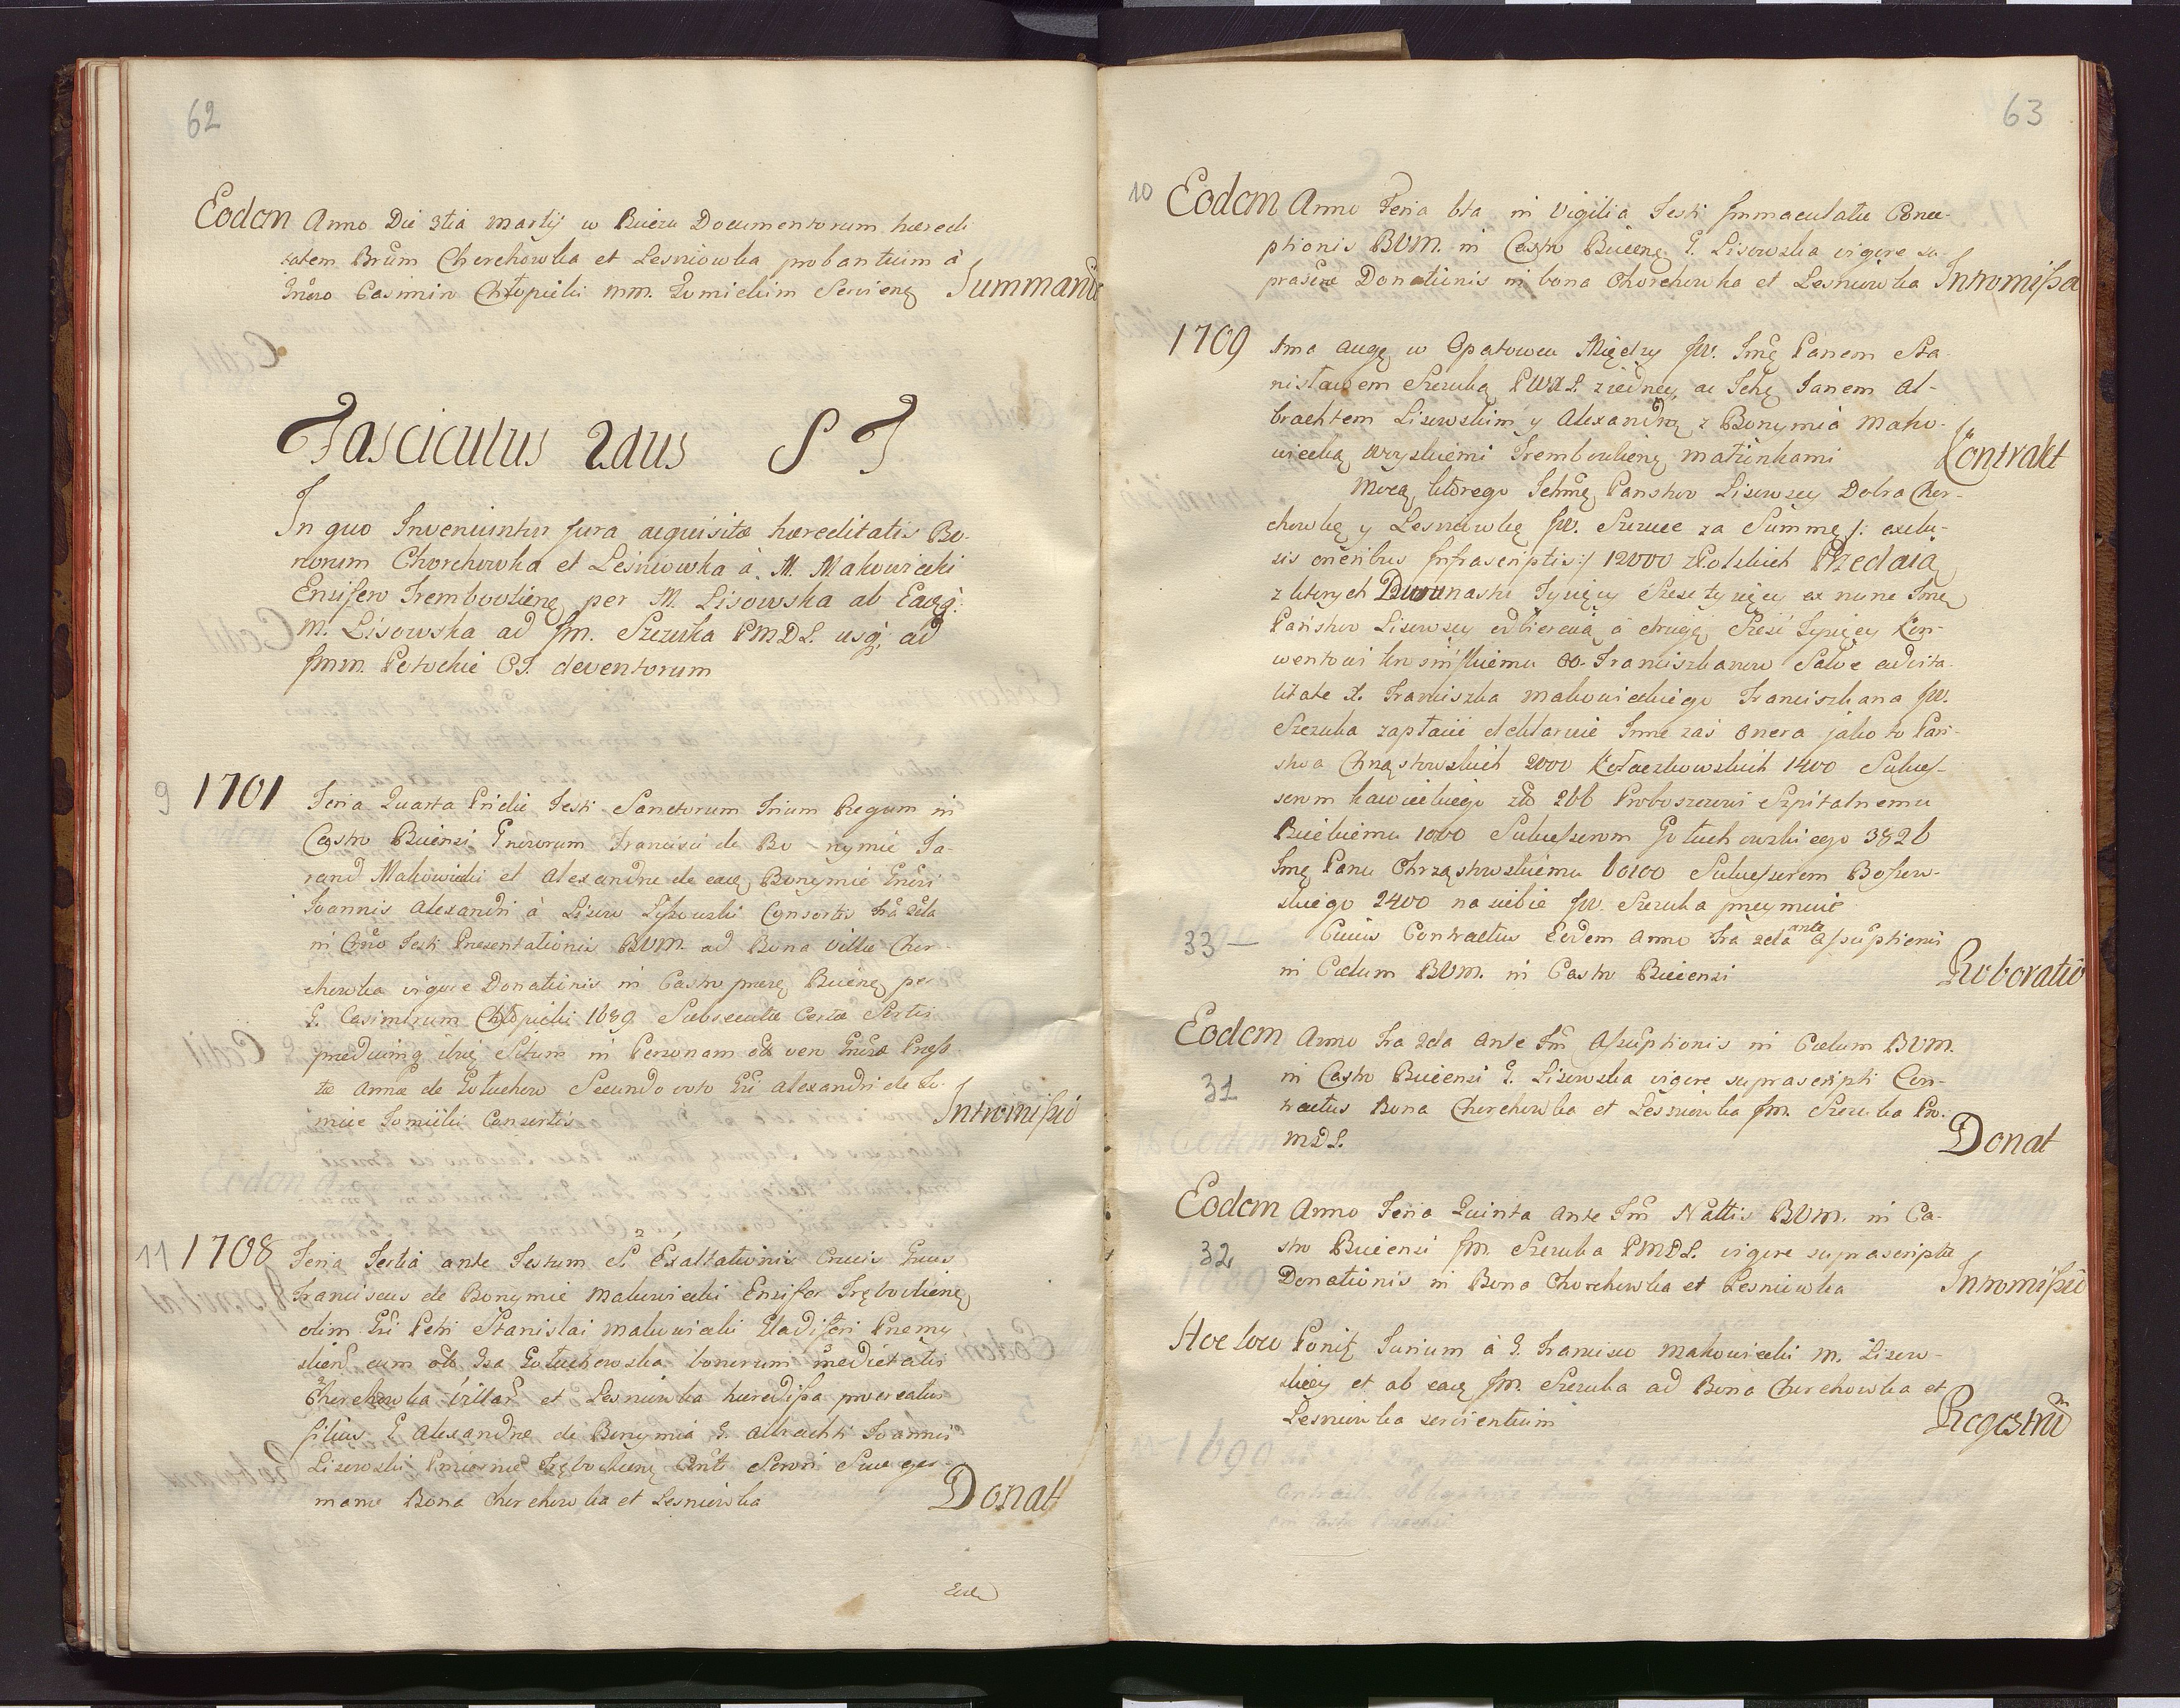 62
Eodem Anno Die 3tia Martij w Bieczu Documentorum hæredi
tatem Brũm Chorchowka et Lesniowka probantium à
Gnẽro Casimiro Chłopicki mm. Łomickim Servienẽ Summariũ
Fasciculus 2dus S T
In quo Inveniuntur Jura acquisitæ hæreditatis Bo-
norum Chorchowka et Lesniowka à M. Makowiecki
Ensifero Trembovlienẽ per M. Lisowska ab Eaqꝫ
M. Lisowska ad Jm. Szczuka PMDL. usqꝫ ad
Jmm. Potockie CT. deventorum
9 1701 Feria Quarta Pridie Festi Sanctorum Trium Regum in
Castro Biecensi Gnerorum Francisci de Bo-nymie Ta-
rand Makowiecki et Alexandræ de eaqꝫ Bonymie Gnẽri
Joannis Alexandri à Lisow Lysowski Consortis Fra 2da
in Cñro Festi Præsentationis BVM. ad Bona Villæ Chor-
chowka vigore Donationis in Castro præsẽ Biecenẽ per
G. Casimirum Chłopicki 1689. Subsecutæ Certæ Sortis
in Personam olim
tæ Annæ de Gołuchow Secundo voto Gñi Alexandri de Ło-
mice Łomicki Consortis Intromissio
11 1708 Feria Tertia ante Festum S. Exaltationis Crucis Gnus
Franciscus de Bonymie Makowiecki Ensifer Tręboulienẽ
olim Gñi Petri Stanislai Makowiecki Gladiferi Præmy-
sliens cum olim Gsa Gołuchowska bonorum medietatis
Chorchowka villaꝫ et Lesniowka hæredissa procreatus
filius G. Alexandræ de Bonymia G. Albrachti Joannis
Lisowski Pincernæ Tręboulienẽ Cnti Sorori Suæ ger-
manæ Bona Chorchowka et Lesniowka Donat
63
10 Eodem Anno Feria 6ta in Vigilia Festi Immaculatæ Conce-
ptionis BVM. in Castro Biecenẽ G. Lisowska vigore su-
prascrẽ Donationis in bona Chorchowka et Lesniowka Intromissa
1709 1ma Augẽ w Opatowcu Między JW. Jmẽ Panem Sta-
nisławem Szczuką PWXL. z iedney, a Ichẽ Janem Al-
brachtem Lisowskim y Alexandrą z Bonymia Mako-
wiecką Trembowlienẽ małżonkami Kontrakt
Mocą ktorego Ichmẽ Panstwo Lisowscy Dobra Chor-
chowkę y Lesniowkę JW. Szczuce za Summę /: exclu-
sis oneribus Infrascriptis :/ 12000 złotskich Przedaią
z ktorych Dwunastu Tysięcy Szesc tysięcy ex nunc Jmẽ
Państwo Lisowscy odbieraią a drugą Szesć Tysięcy Kon-
wentowi Krosińskiemu OO. Franciszkanow Salvo advita-
litate X. Franciszka Makowieckiego Franciszkana JW.
Szczuka zapłacić deklaruie Inne zaś Onera jako to Pań-
stwa Chrząstowskich 2000 Kołaczkowskich 1400 Sukces-
sorom Kawieckiego zło 266 Proboszczowi Szpitalnemu
Bieckiemu 1000 Sukcessorom Gołuchowskiego 3826
Jmẽ Panu Chrząstowskiemu 60100 Sukcessorom Bossow-
skiego 2400 na siebie JW. Szczuka przymuie
33 — Cuius Contractus Eodem Anno Fra 2da ante Assũptionis
in Cœlum BVM. in Castro Biecensi Roboratio
Eodem Anno Fra 2da Ante Fm̃ Assũptionis in Cœlum BVM.
31 in Castro Biecensi G. Lisowska vigore suprascripti Con-
tractus Bona Chorchowka et Lesniowka Jm. Szczuka Pro.
MDL. Donat
Eodem Anno Feria Quinta Ante Fm̃ Nattis BVM. in Ca-
32 stro Biecensi Jm. Szczuka PMDL. vigore suprascriptæ
Donationis in Bona Chorchowka et Lesniowka Intromissio
Hoc loco Ponitꝫ Jurium à G. Francisco Makowiecki M. Lisow-
skiey et ab eaqꝫ Jm. Szczuka ad Bona Chorchowka et
Lesniowka servientium Regestrũ